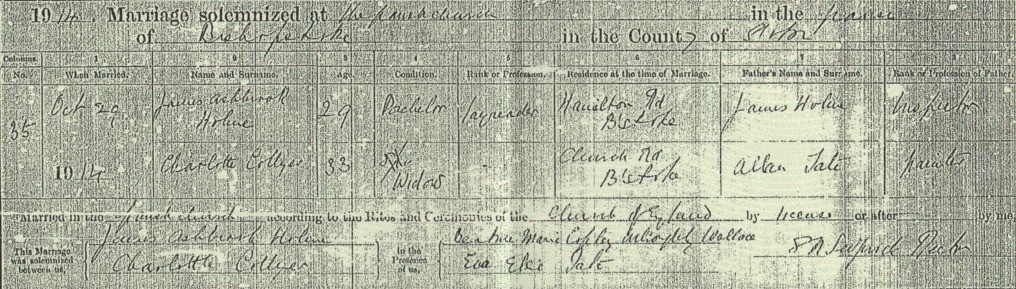 1914. Marriage solemnized at the parish church in the parish
of Bishopstoke in the County of
Columns. 1 2 3 4 5 6 7 8
No. When Married. Name and Surname. Age. Condition. Rank or Profession. Residence at the time of Marriage. Father's Name and Surname. Rank or Profession of Father.
35 Oct 29 James Ashbrook Holme 29 Bachelor Layreader Hamilton Rd B'stoke James Holme Inspector
1914 Charlotte Collyer 33 Widow - Church Rd B'stoke Allan Tate painter
Married in the parish church according to the Rites and Ceremonies of the Church of England by license or after by me,
This Marriage was solemnized between us, James Ashbrook Holme Charlotte Collyer In the Presence of us, Marie Wallace Eva Tate Rector